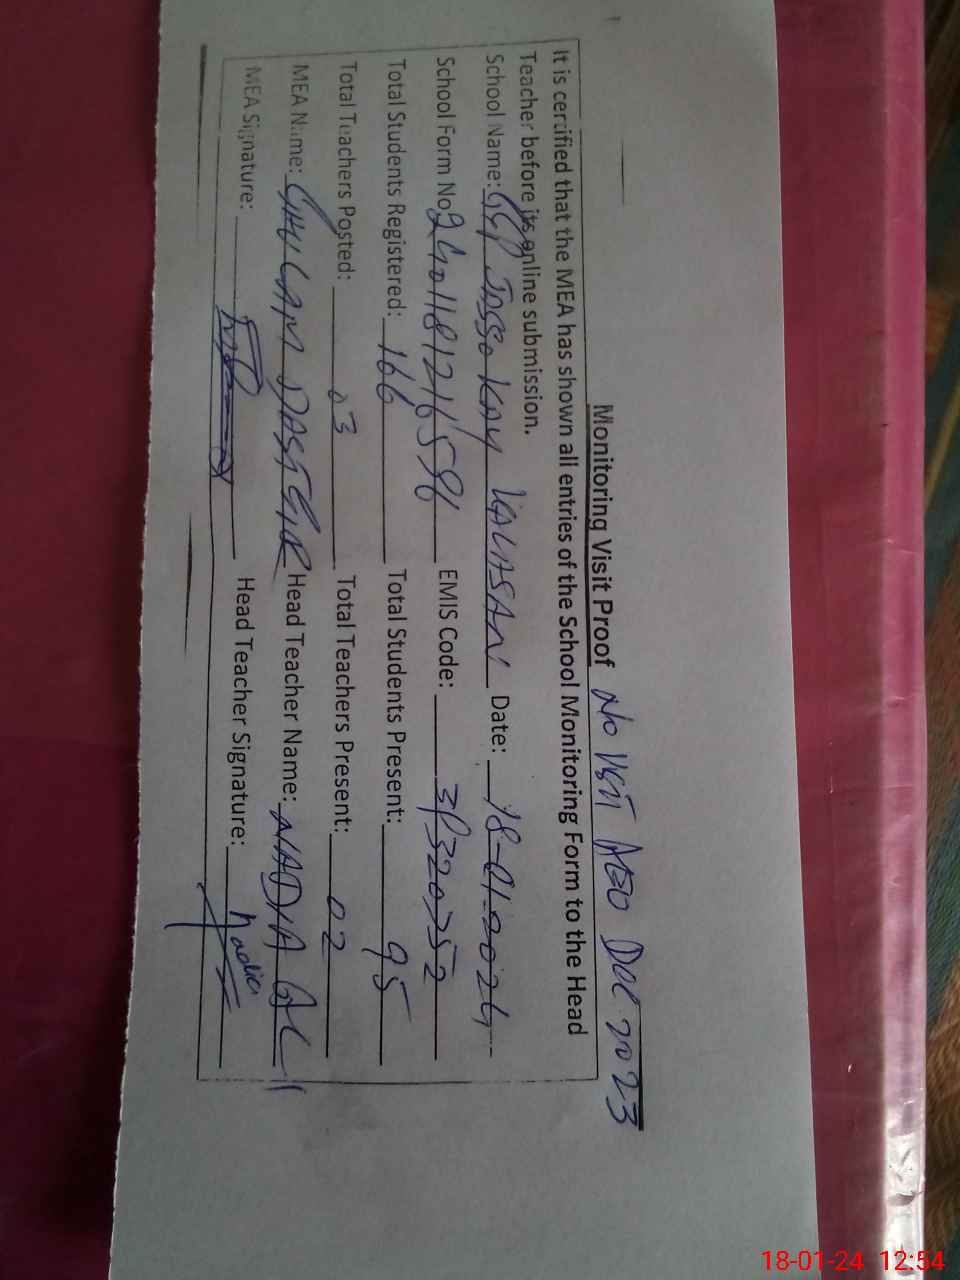 Monitoring Visit Proof No Visit AEO Dec 2023
It is certified that the MEA has shown all entries of the School Monitoring Form to the Head
Teacher before its online submission.
School Name: JASSO KAY KALASAN Date: 18-01-2024
School Form No EMIS Code:
Total Students Registered: 166 Total Students Present: 95
Total Teachers Posted: 03 Total Teachers Present: 02
MEA Name: GHULAM Head Teacher Name: NADIA
MEA Signature: Head Teacher Signature: Nadia
18-01-24 12:54